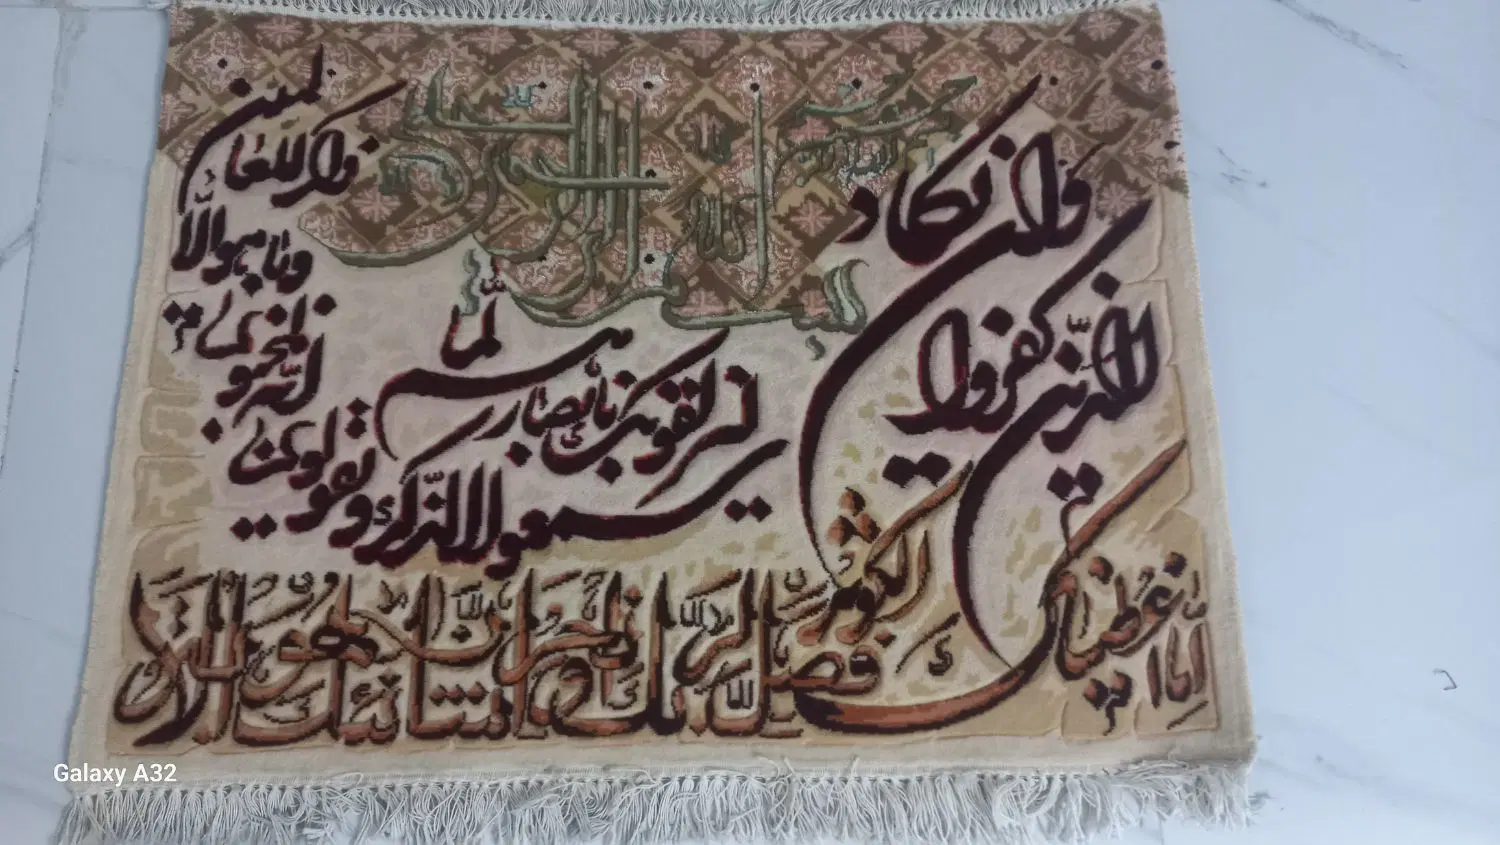 بسم الله الرحمن الرحيم
وان يكاد
الذين كفروا
ليزلقونك بابصارهم لما
سمعوا الذكر ويقولون
انه لمجنون
وما هو الا
ذكر للعالمين
انا اعطيناك الكوثر
فصل لربك وانحر ان شانئك هو الابتر
Galaxy A32